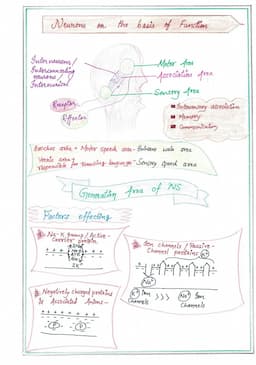 Neurons on the basis of Function
Inter neurons/
Interconnecting
neurons/
Interneuron
Motor Area
Association Area
Sensory Area
Receptor
Effector
Intersensory association
Memory
Communication
Broca's area = Motor speech area -
area
responsible for
language - Sensory speech area
Generating Area of NS
Factors effecting
Na-K Pump/Active-
Carrier protein
Ion channels/Passive-
Channel proteins
K+
Na+
K+ Ion
Channels
>>>
Na+ Ion
Channels
Negatively charged proteins
& Associated Anions-
P
P